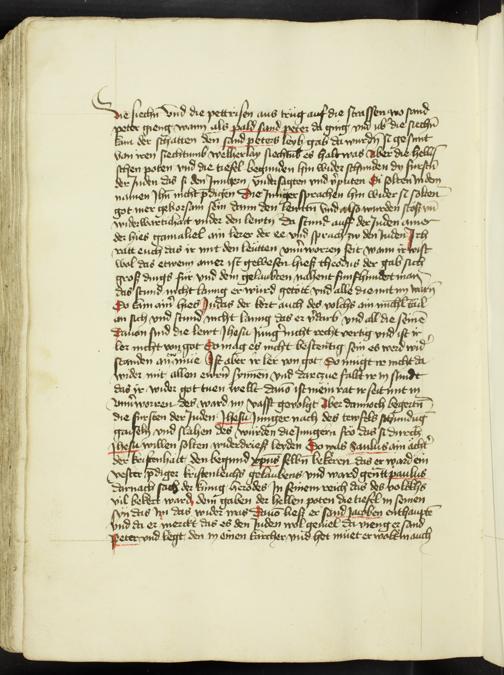 die siechn vnd die pettrisen aus trüg auf die strassen wo sand
peter gieng wann als pald sand peter da ging vnd üb die siechn
kam der schatten den sand peters leyb gab da wurdn si gesunt
von iren siechtumb welherlay siechtub es halt was Aber die helli
schen poten vnd die tiefel begunden hin wider schunden dy fürstn
der Juden das si den Jungern vndersagten vnd puten Si solten in dem
namen Jhu nicht predigen Die Junger sprachen hin wider si solten
got mer gehorsam sein dann den lewten vnd also wurden stoss vn
widerwärtichait vnder den lewtn da stund auff der Juden ainer
der hies gamaliel ain lerer der ee vnd sprach zw den Juden Ich
ratt euch das ir mit den leutten vnuerworren seit wann ir wist
wol das etwenn ainer ist gewesen hiess theodas der gab sich
gross dings für vnd dem gelaubten nahent fünfhundert man
das stund nicht lanng er würd getött vnd alle die mit im warn
So kam ainer hies Judas der kert auch des volchs ain michl tail
an sich vnd stund nicht lanng das er verdarb vnd all die seinē
Dauon sind die lewt Jhesu Jung nicht recht vertig vnd ist ir
ler nicht von got So mag es nicht bestettig sein es werd wid
standen an mue Ist aber ir ler von got So mügt ir nicht da
wider mit allen ewrn synnen vnd darczue fallt ir in sündt
das ir wider got tuen wellt dauō ist mein rat ir seit mit in
vnuerworren des ward im vasst geuolgt Aber dannoch begerten
die fürsten der Juden Jhesu Junger nach des tewfels schündung
gaiseln vnd slahen des würden die Jungern fro das si durch
Jhesu willen solten widerdriess leyden So was Saulus ain ächt
der kristenhait den begund xpus selbn bekeren das er ward ein
vester prediger kristenleichs gelaubens vnd ward genant paulus
darnach sach der künig herodes in seinem reich das des volkchs
vil bekert ward dem gaben der hellen poten die tiefel in seinen
syn das im das wider was Dauō liess er sand Jacoben enthaupten
vnd da er merckt das es den Juden wol geuiel da vieng er sand
Peter vnd legt den in einen kärcher vnd het muet er wolt in auch